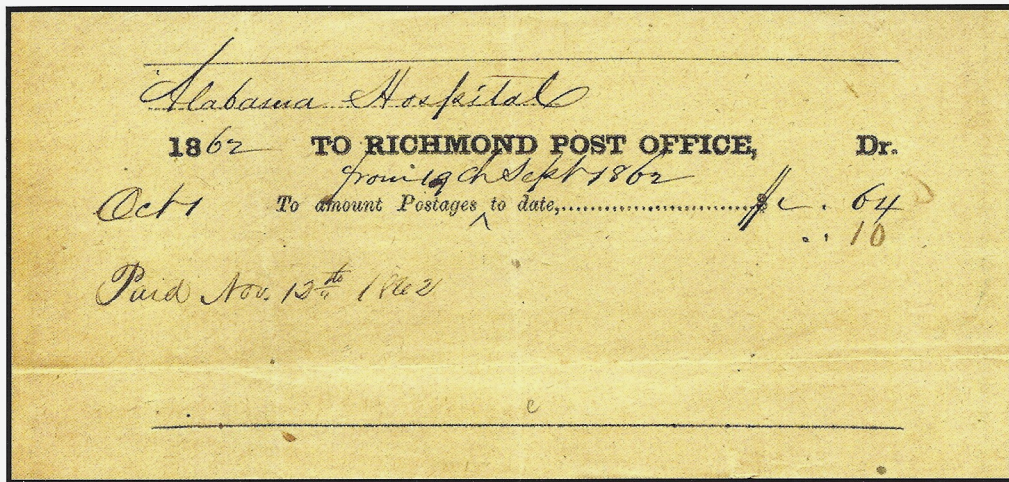 Alabama Hospital
1862 TO RICHMOND POST OFFICE, Dr.
from 19th Sept 1862
Oct 1 To amount Postages ^ to date,........................$ . 64
.. 10
Paid Nov. 12th 1862